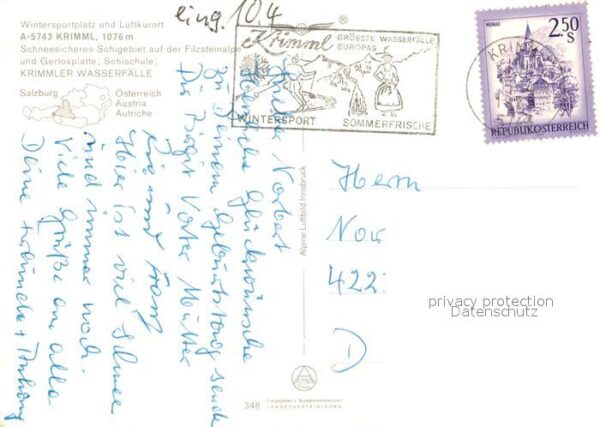 eing. 10.4
Wintersportplatz und Luftkurort
A-5743 KRIMML, 1076 m
Schneesicheres Schigebiet auf der Filzsteinalde
und Gerlosplatte; Schischule;
KRIMMLER WASSERFÄLLE
Salzburg
Österreich
Austria
Autriche
Krimml
GRÖSSTE WASSERFÄLLE
EUROPAS
WINTERSPORT SOMMERFRISCHE
KRIMML
MURAU
2.50 S
REPUBLIK ÖSTERREICH
Lieber Norbert
Herzliche Glückwünsche
zu Deinem Geburtstag sende
Dir Birgit Vater Mutter
und
Hier ist viel Schnee
und immer noch.
Viele Grüße an alle
Deine
Alpine Luftbild Innsbruck
348
Freigegeben v. Bundesministerium f.
LANDESVERTEIDIGUNG
Herrn
422
D
privacy protection
Datenschutz